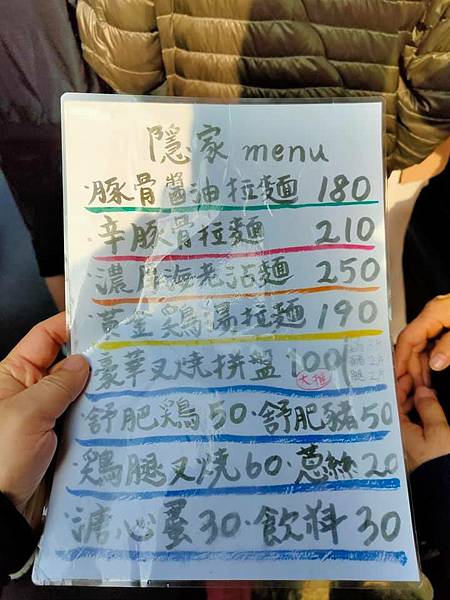 隱家 menu
豚骨醬油拉麵 180
辛豚骨拉麵 210
濃厚海老沾麵 250
黃金鶏湯拉麵 190
豪華叉燒拼盤 100
大推
舒肥鶏 50·舒肥豬 50
鶏腿叉燒 60·蔥絲 20
溏心蛋 30·飲料 30